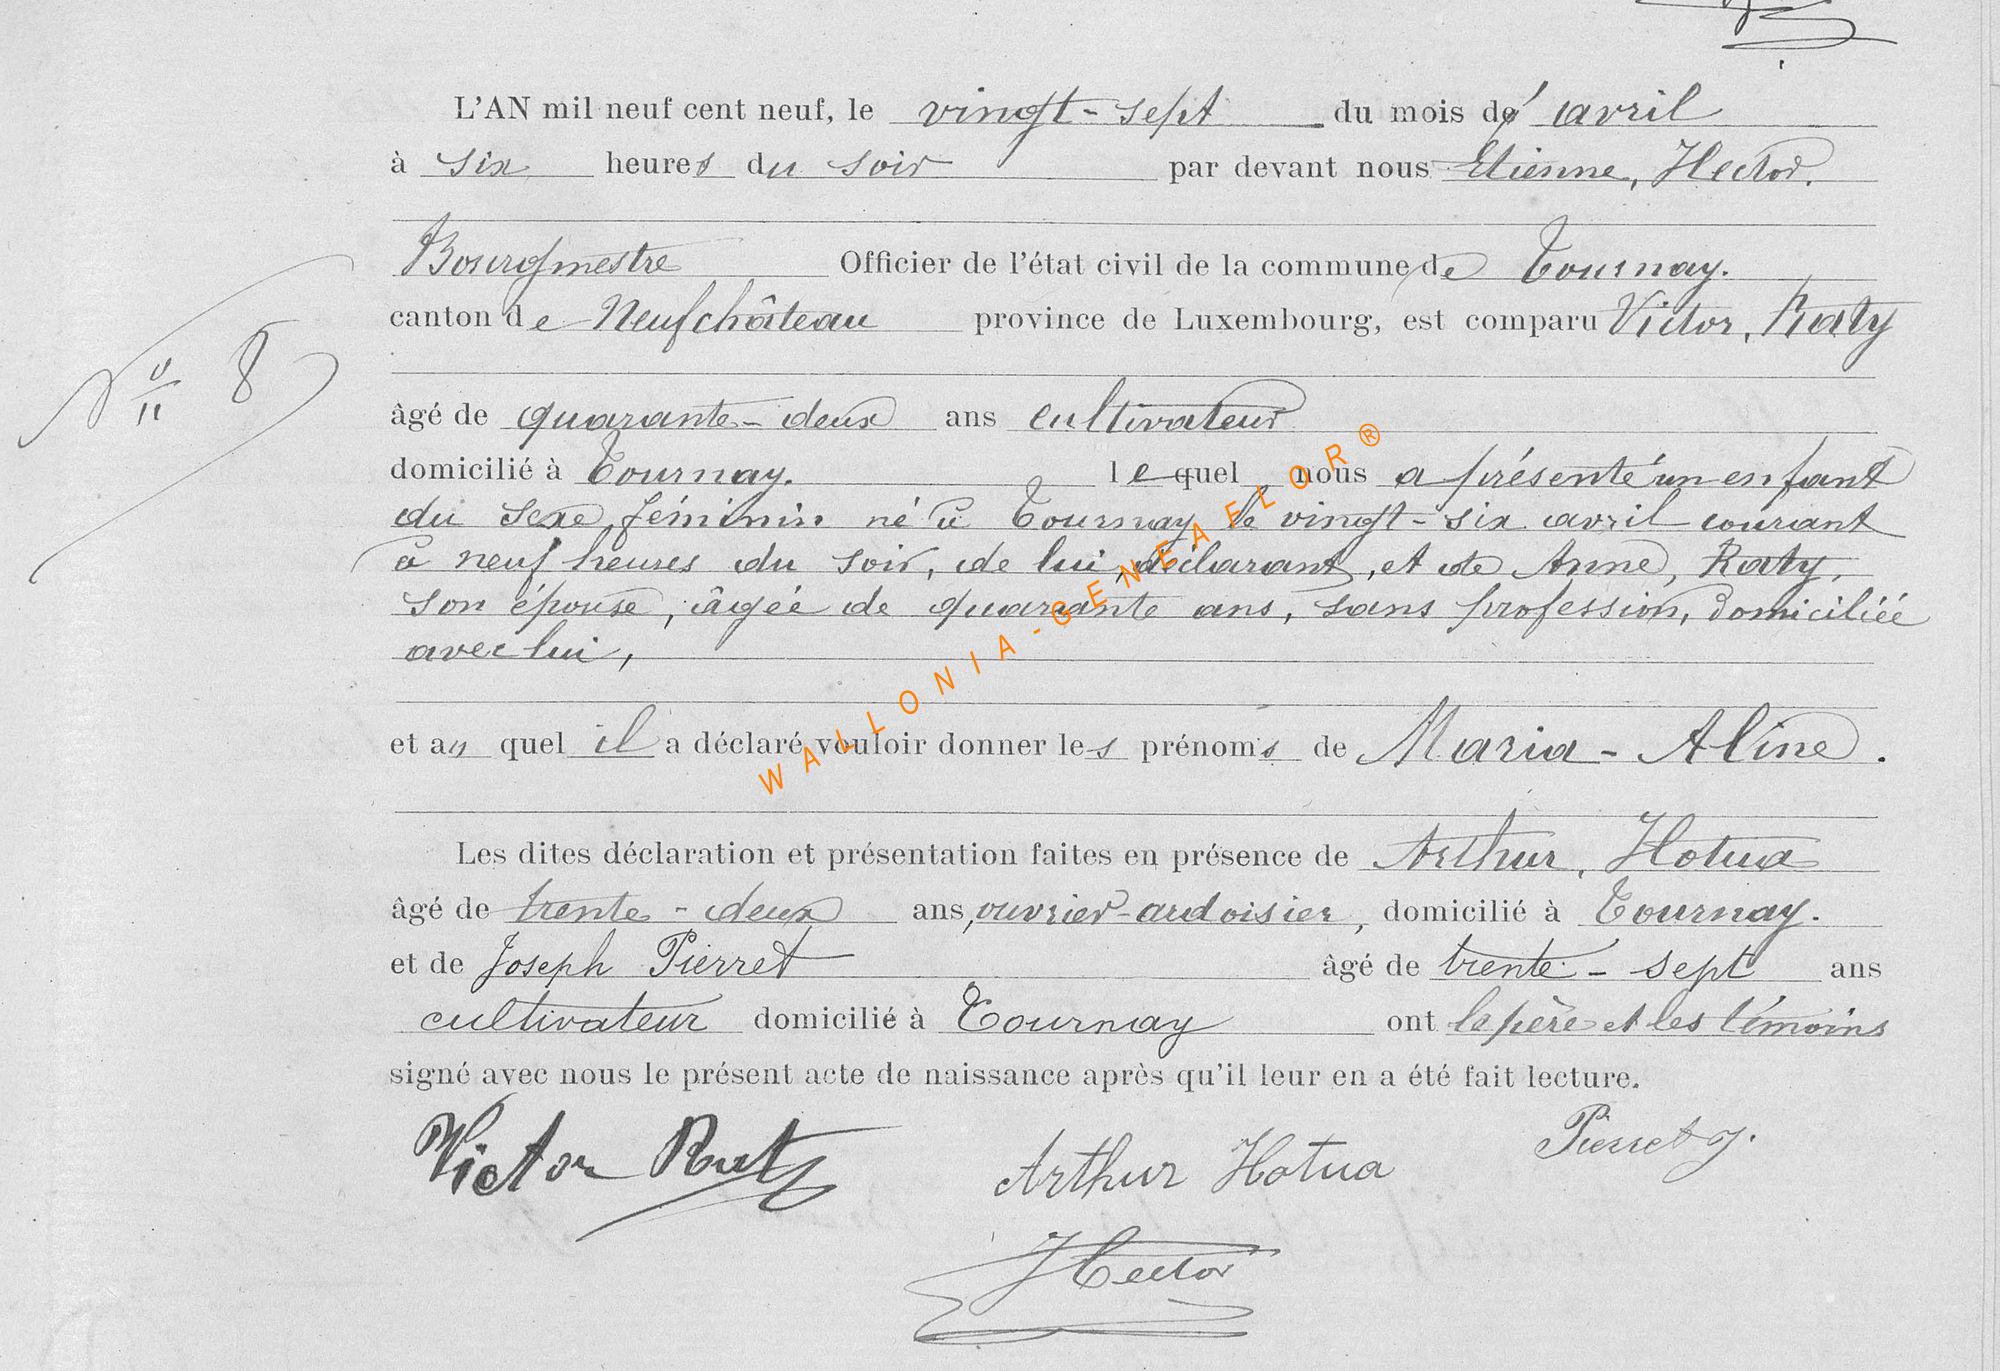 L'AN mil neuf cent neuf, le vingt-sept du mois d' avril
à six heures du soir par devant nous Etienne, Hector.
Bourgmestre Officier de l'état civil de la commune de Tournay.
canton de Neufchâteau province de Luxembourg, est comparu Victor, Raty
N° 8
âgé de quarante-deux ans cultivateur
domicilié à Tournay. lequel nous a présenté un enfant
du sexe féminin né à Tournay le vingt-six avril courant
à neuf heures du soir, de lui, déclarant, et de Anne, Raty,
son épouse, âgée de quarante ans, sans profession, domiciliée
avec lui,
et auquel il a déclaré vouloir donner les prénoms de Maria-Aline.
Les dites déclaration et présentation faites en présence de Arthur, Hotua
âgé de trente-deux ans, ouvrier-ardoisier, domicilié à Tournay.
et de Joseph Pierret âgé de trente-sept ans
cultivateur domicilié à Tournay ont le père et les témoins
signé avec nous le présent acte de naissance après qu'il leur en a été fait lecture.
Victor Raty Arthur Hotua Pierret J.
Hector
WALLONIA-GENEALOR®